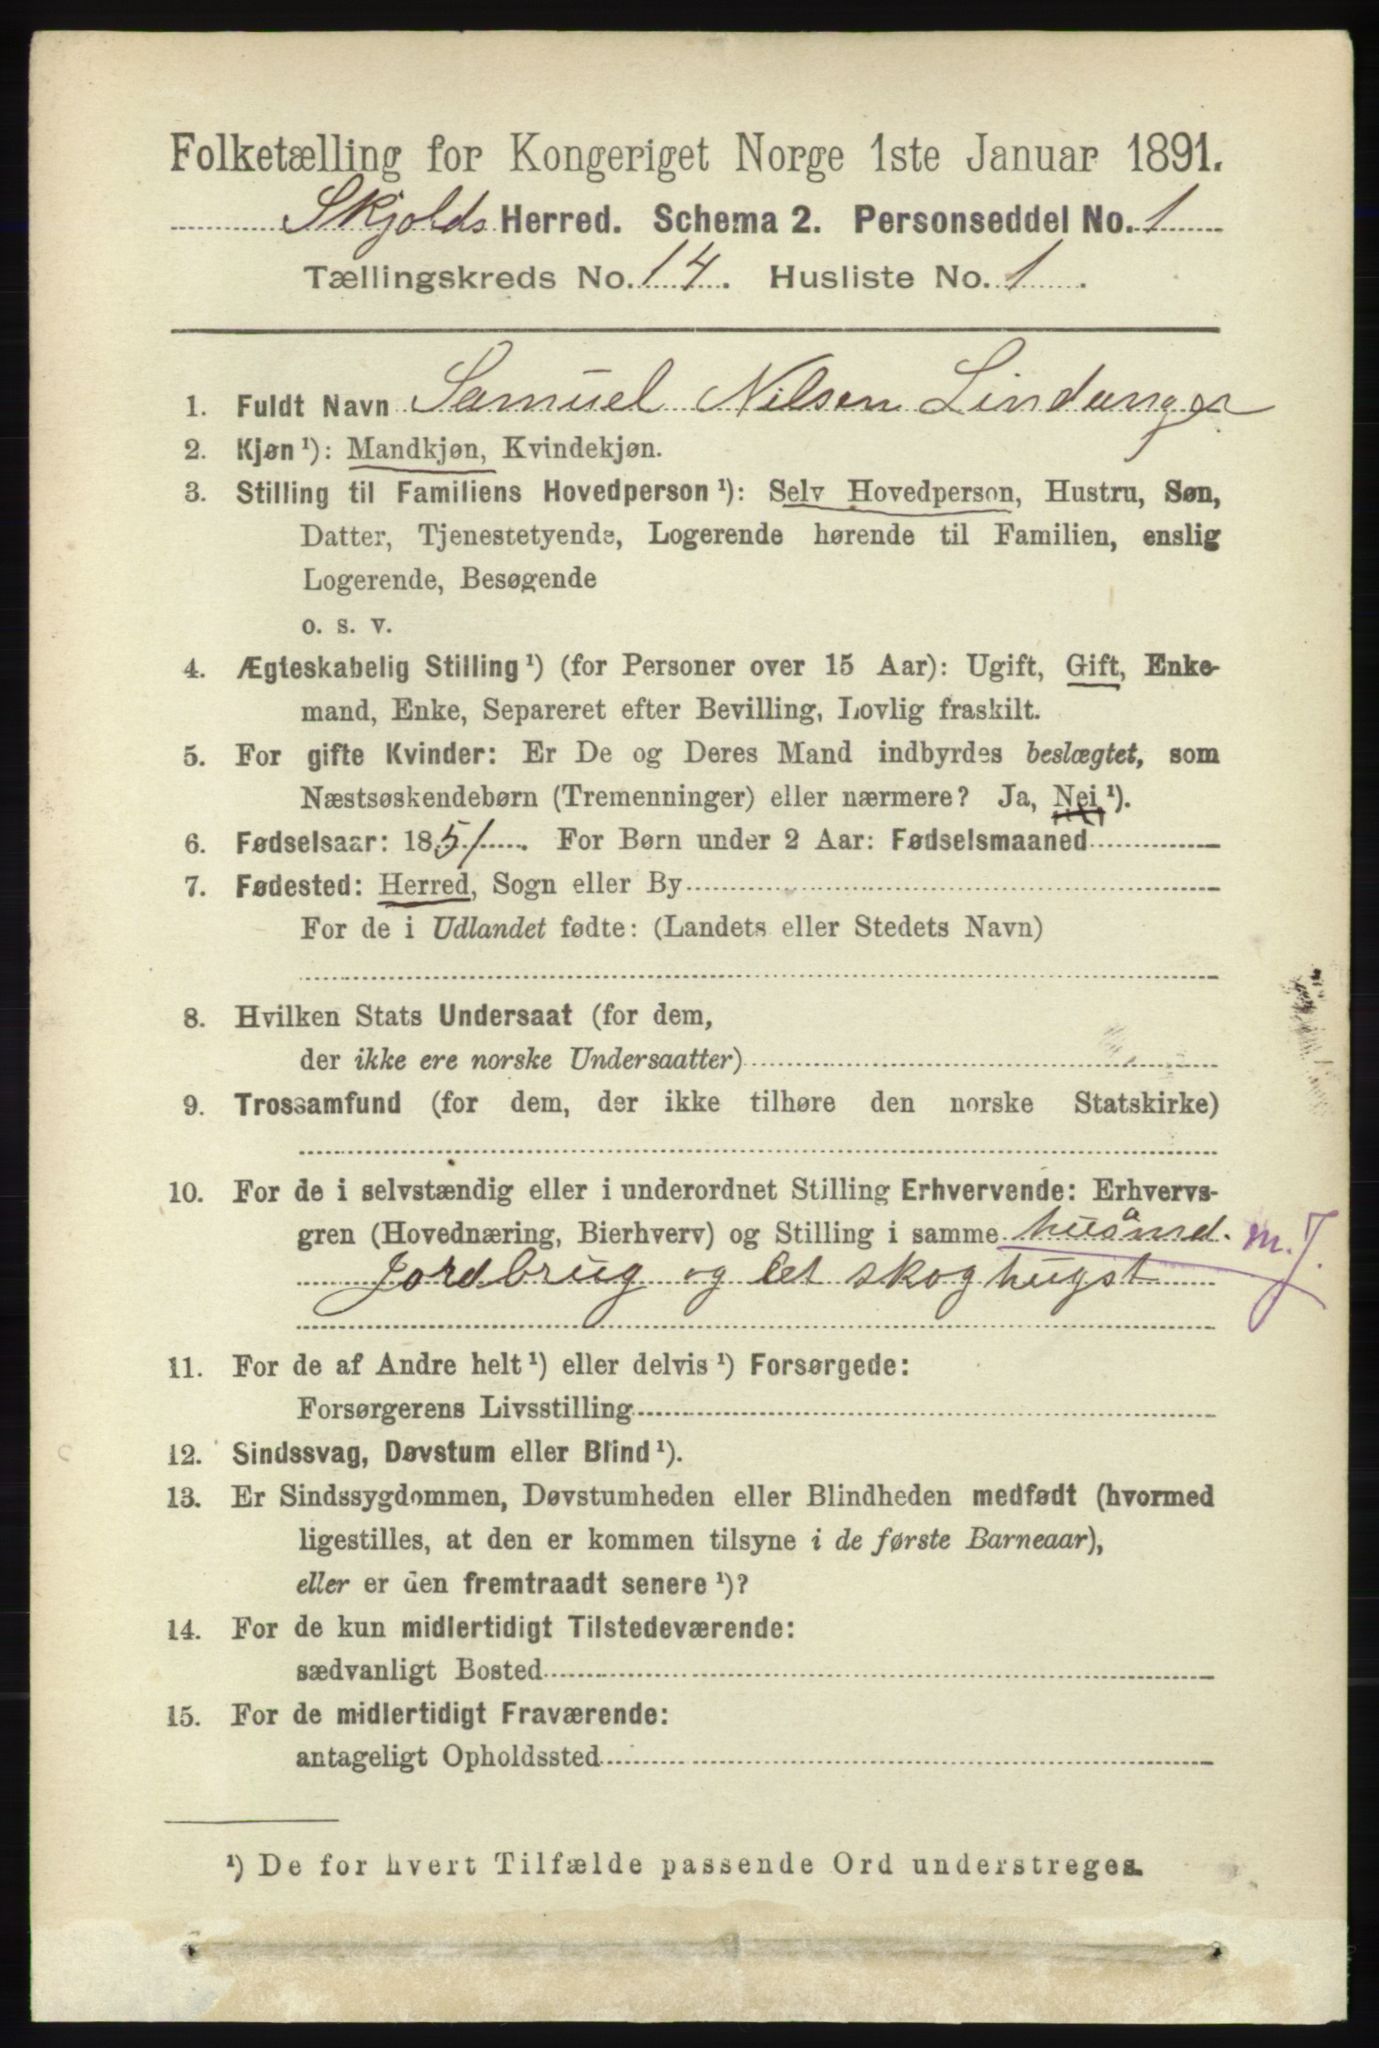 Folketælling for Kongeriget Norge 1ste Januar 1891.
Skjolds Herred. Schema 2. Personseddel No. 1
Tællingskreds No. 14. Husliste No. 1.
1. Fuldt Navn Samuel Nilsen Lindanger
2. Kjøn¹): Mandkjøn, Kvindekjøn.
3. Stilling til Familiens Hovedperson¹): Selv Hovedperson, Hustru, Søn,
Datter, Tjenestetyende, Logerende hørende til Familien, enslig
Logerende, Besøgende
o. s. v.
4. Ægteskabelig Stilling¹) (for Personer over 15 Aar): Ugift, Gift, Enke-
mand, Enke, Separeret efter Bevilling, Lovlig fraskilt.
5. For gifte Kvinder: Er De og Deres Mand indbyrdes beslægtet, som
Næstsøskendebørn (Tremenninger) eller nærmere? Ja, Nei¹).
6. Fødselsaar: 1851. For Børn under 2 Aar: Fødselsmaaned
7. Fødested: Herred, Sogn eller By
For de i Udlandet fødte: (Landets eller Stedets Navn)
8. Hvilken Stats Undersaat (for dem,
der ikke ere norske Undersaatter)
9. Trossamfund (for dem, der ikke tilhøre den norske Statskirke)
10. For de i selvstændig eller i underordnet Stilling Erhvervende: Erhvervs-
gren (Hovednæring, Bierhverv) og Stilling i samme husmd. m. J.
Jordbrug og let skoghugst
11. For de af Andre helt¹) eller delvis¹) Forsørgede:
Forsørgerens Livsstilling
12. Sindssvag, Døvstum eller Blind¹).
13. Er Sindssygdommen, Døvstumheden eller Blindheden medfødt (hvormed
ligestilles, at den er kommen tilsyne i de første Barneaar),
eller er den fremtraadt senere¹)?
14. For de kun midlertidigt Tilstedeværende:
sædvanligt Bosted
15. For de midlertidigt Fraværende:
antageligt Opholdssted
¹) De for hvert Tilfælde passende Ord understreges.